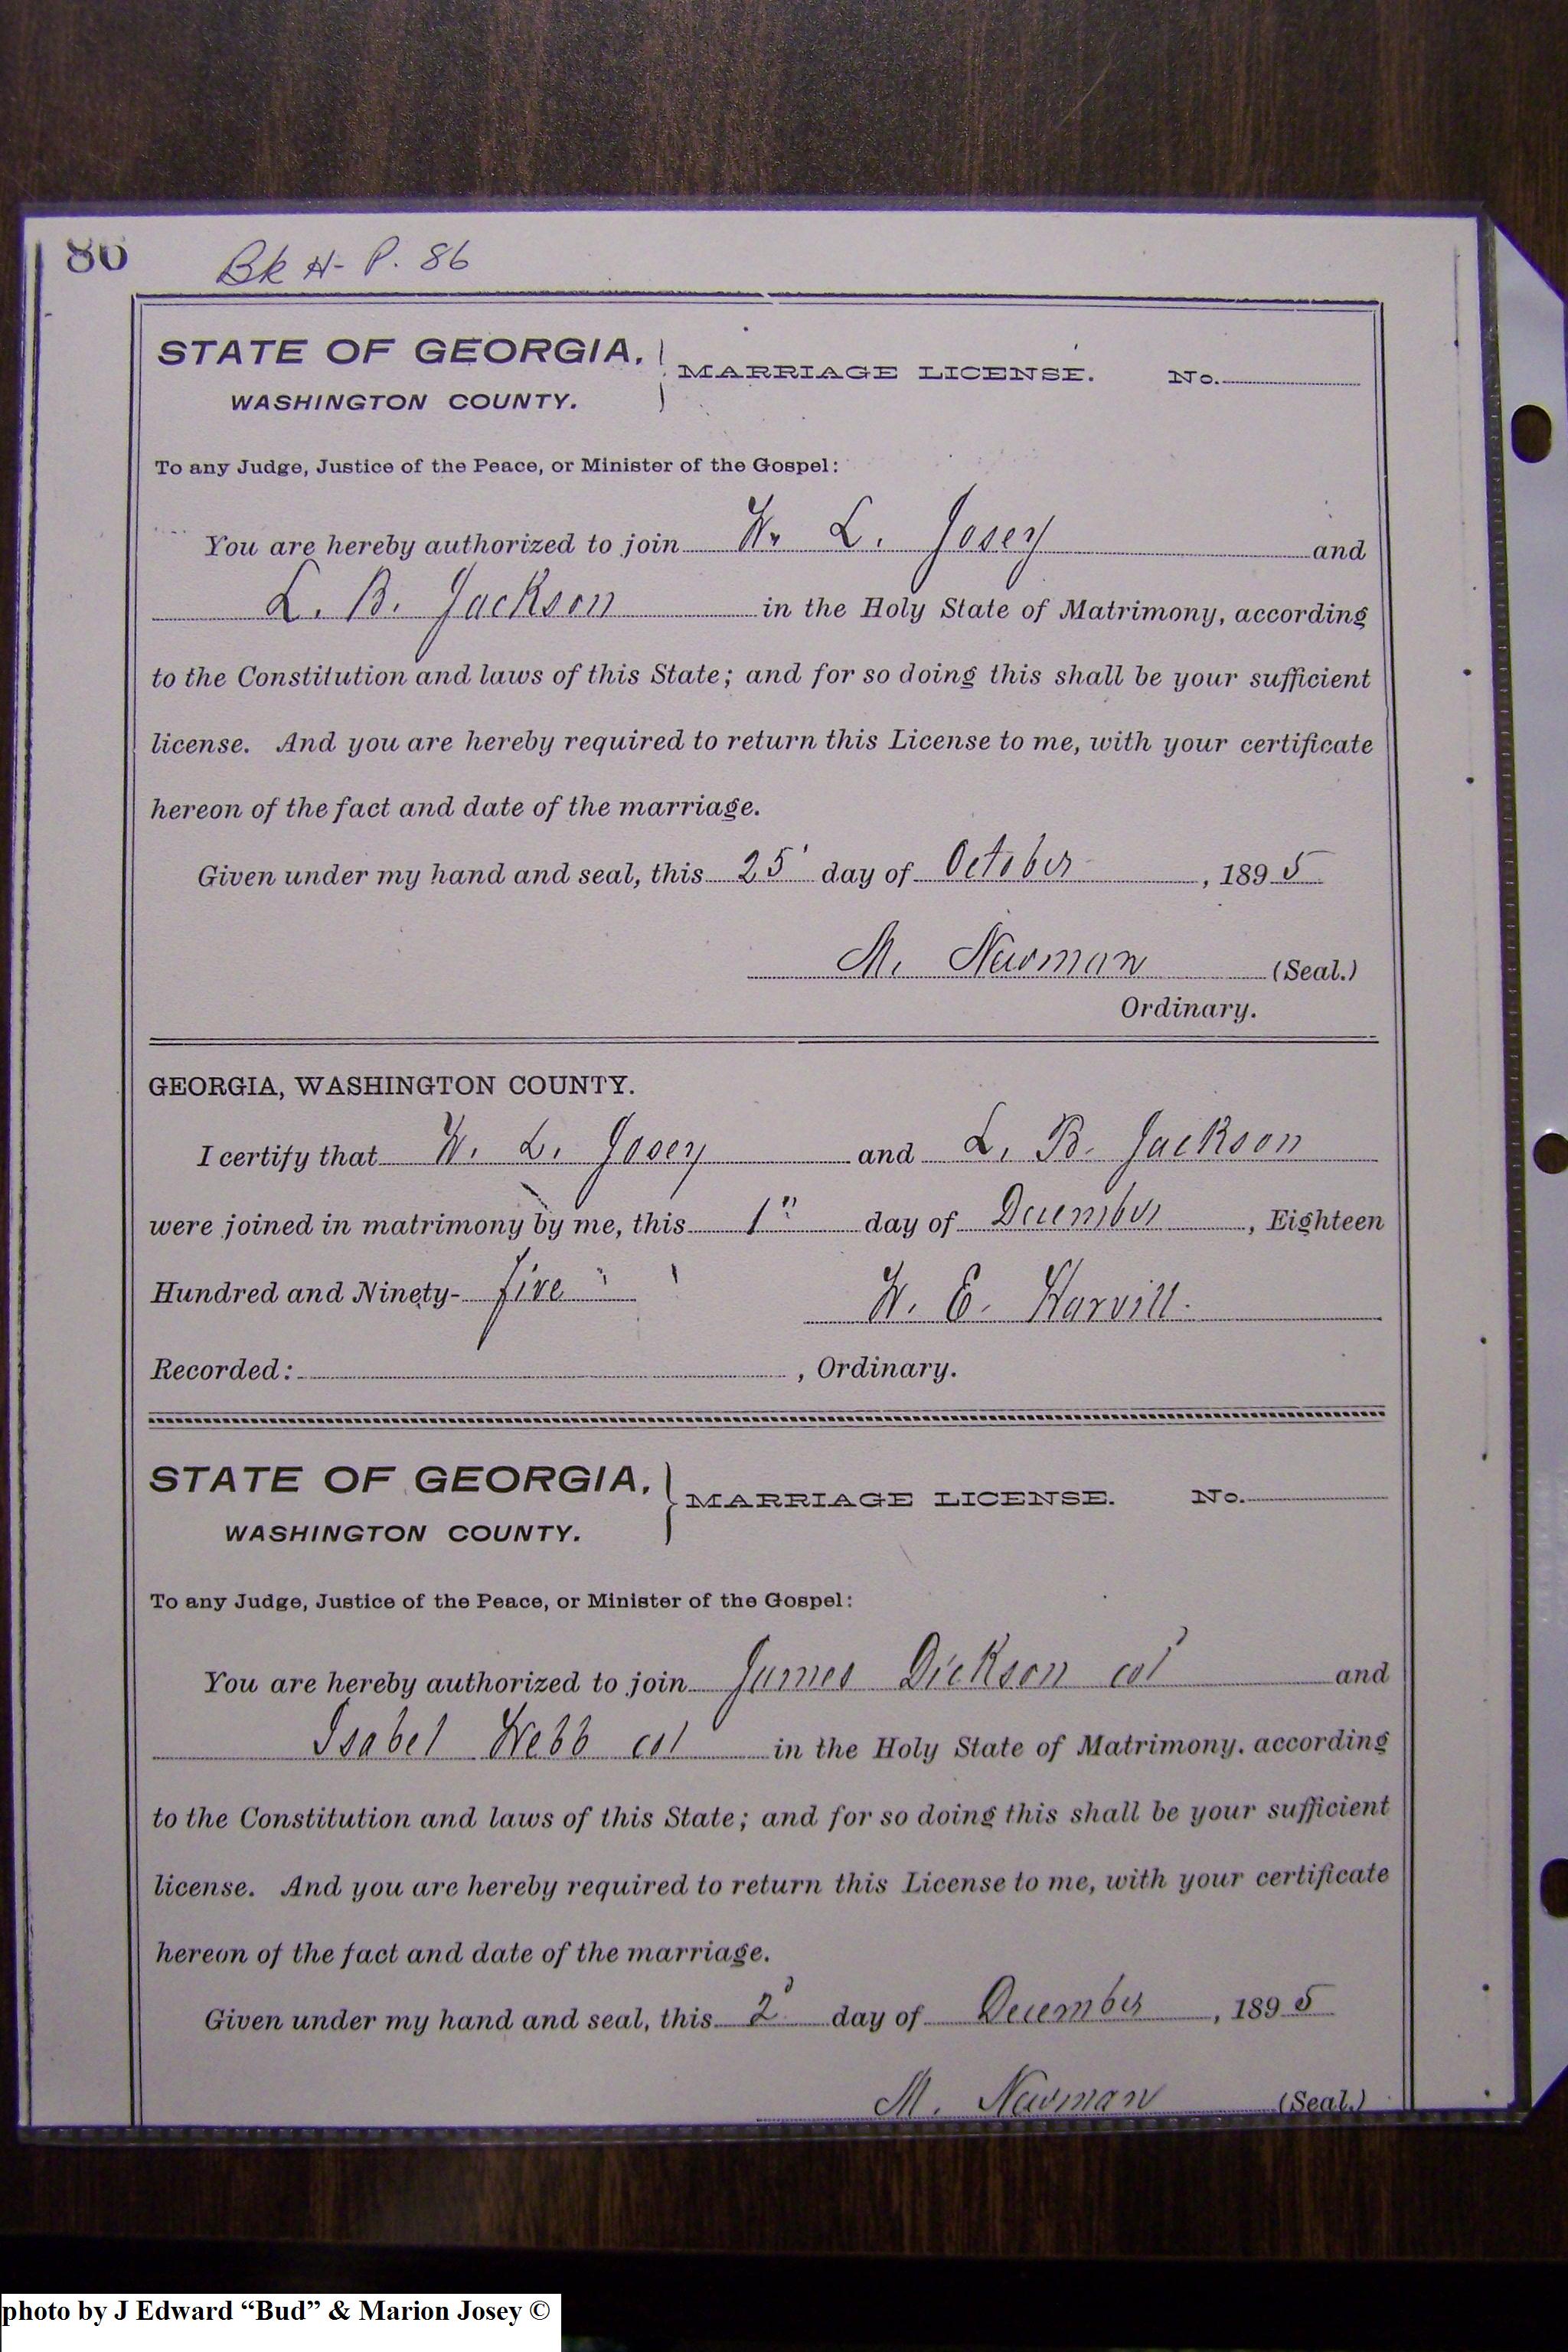 86 Bk H- P. 86
STATE OF GEORGIA, MARRIAGE LICENSE. No.
WASHINGTON COUNTY.
To any Judge, Justice of the Peace, or Minister of the Gospel:
You are hereby authorized to join W. L. Josey and
L. B. Jackson in the Holy State of Matrimony, according
to the Constitution and laws of this State; and for so doing this shall be your sufficient
license. And you are hereby required to return this License to me, with your certificate
hereon of the fact and date of the marriage.
Given under my hand and seal, this 25' day of October, 1895
M. Newman (Seal.)
Ordinary.
GEORGIA, WASHINGTON COUNTY.
I certify that W. L. Josey and L. B. Jackson
were joined in matrimony by me, this 1" day of December, Eighteen
Hundred and Ninety- five W. E. Harvill.
Recorded: , Ordinary.
STATE OF GEORGIA, MARRIAGE LICENSE. No.
WASHINGTON COUNTY.
To any Judge, Justice of the Peace, or Minister of the Gospel:
You are hereby authorized to join James Dickson col and
Isabel Webb col in the Holy State of Matrimony. according
to the Constitution and laws of this State; and for so doing this shall be your sufficient
license. And you are hereby required to return this License to me, with your certificate
hereon of the fact and date of the marriage.
Given under my hand and seal, this 2' day of December, 1895
M. Newman (Seal.)
photo by J Edward “Bud” & Marion Josey ©